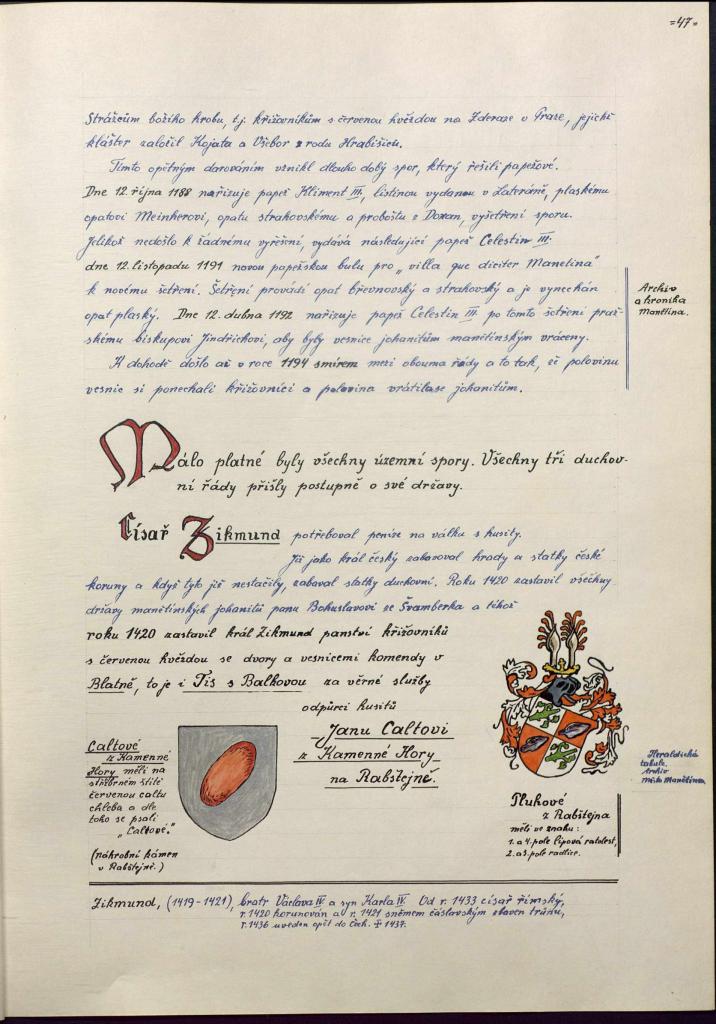 =47=
Strážcům božího hrobu, t.j. křižovníkům s červenou hvězdou na Zderaze v Praze, jejichž
klášter založil Kojata a Všebor z rodu Hrabišiců.
Tímto opětným darováním vznikl dlouho dobý spor, který řešili papežové.
Dne 12. října 1188 nařizuje papež Kliment III, listinou vydanou v Lateráně, plaskému
opatovi Meinherovi, opatu strahovskému a proboštu z Doxan, vyšetření sporu.
Jelikož nedošlo k žádnému vyřešení, vydává následující papež Celestin III.
dne 12. listopadu 1191 novou papežskou bulu pro „villa que diciter Manetina"
k novému šetření. Šetření provádí opat břevnovský a strahovský a je vynechán
opat plaský. Dne 12. dubna 1192 nařizuje papež Celestin III. po tomto šetření praž-
skému biskupovi Jindřichovi, aby byly vesnice johanitům manětínským vráceny.
K dohodě došlo až v roce 1194 smírem mezi obouma řády a to tak, že polovinu
vesnic si ponechali křižovníci a polovina vrátila se johanitům.
Archiv
a kronika
Manětína.
Málo platné byly všechny územní spory. Všechny tři duchov-
ní řády přišly postupně o své državy.
Císař Zikmund potřeboval peníze na válku s husity.
Již jako král český zabavoval hrady a statky české
koruny a když tyto již nestačily, zabaval statky duchovní. Roku 1420 zastavil všechny
državy manětínských johanitů panu Bohuslavovi ze Švamberka a téhož
roku 1420 zastavil král Zikmund panství křižovníků
s červenou hvězdou se dvory a vesnicemi komendy v
Blatně, to je i Tis s Balkovou za věrné služby
odpůrci husitů
Janu Caltovi
z Kamenné Hory
na Rabštejně.
Caltové
z Kamenné
Hory měli na
stříbrném štítě
červenou caltu
chleba a dle
toho se psali
„Caltové."
(náhrobní kámen
v Rabštejně.)
Pluhové
z Rabštejna
měli ve znaku:
1. a 4. pole lipová ratolest,
2. a 3. pole radlice.
Heraldická
tabule.
Archiv
města Manětína.
Zikmund, (1419-1421), bratr Václava IV a syn Karla IV. Od r. 1433 císař římský,
r. 1420 korunován a r. 1421 sněmem čáslavským zbaven trůnu,
r. 1436 uveden opět do Čech. + 1437.